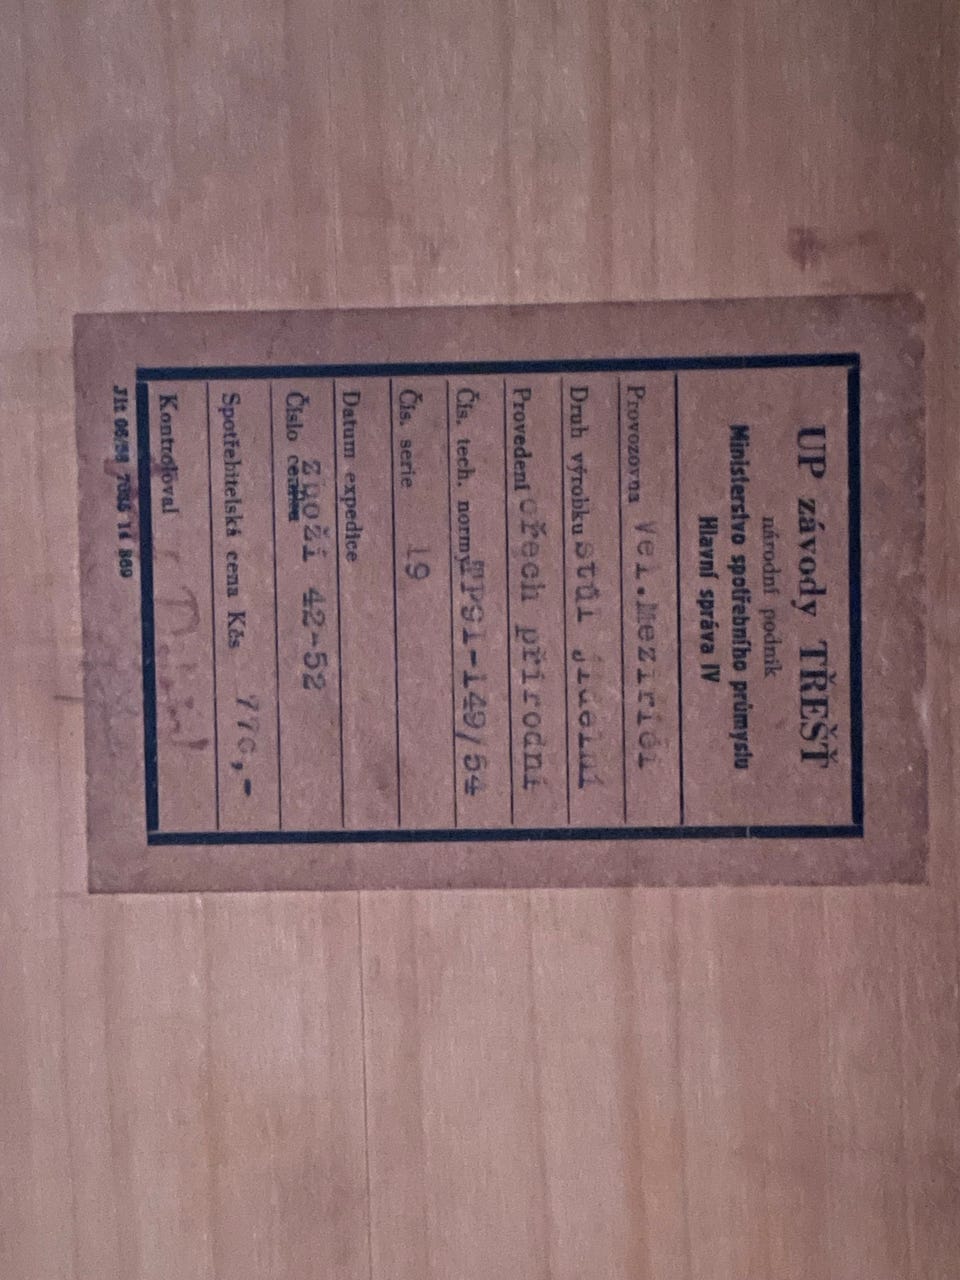 UP závody TŘEŠŤ
národní podnik
Ministerstvo spotřebního průmyslu
Hlavní správa IV
Provozovna Vel.Meziříčí
Druh výrobku stůl jídelní
Provedení ořech přírodní
Čís. tech. normy TPS1-149/54
Čís. serie 19
Datum expedice
Číslo zboží 42-52
Spotřebitelská cena Kčs 770,-
Kontroloval